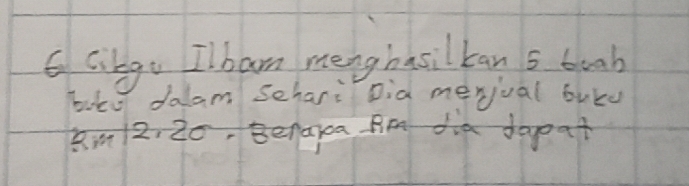 6 Cikgu Ilham menghasilkan 5 buah
buku dalam sehari Dia menjual buku
Rm 12.20. Berapa Rm dia dapat